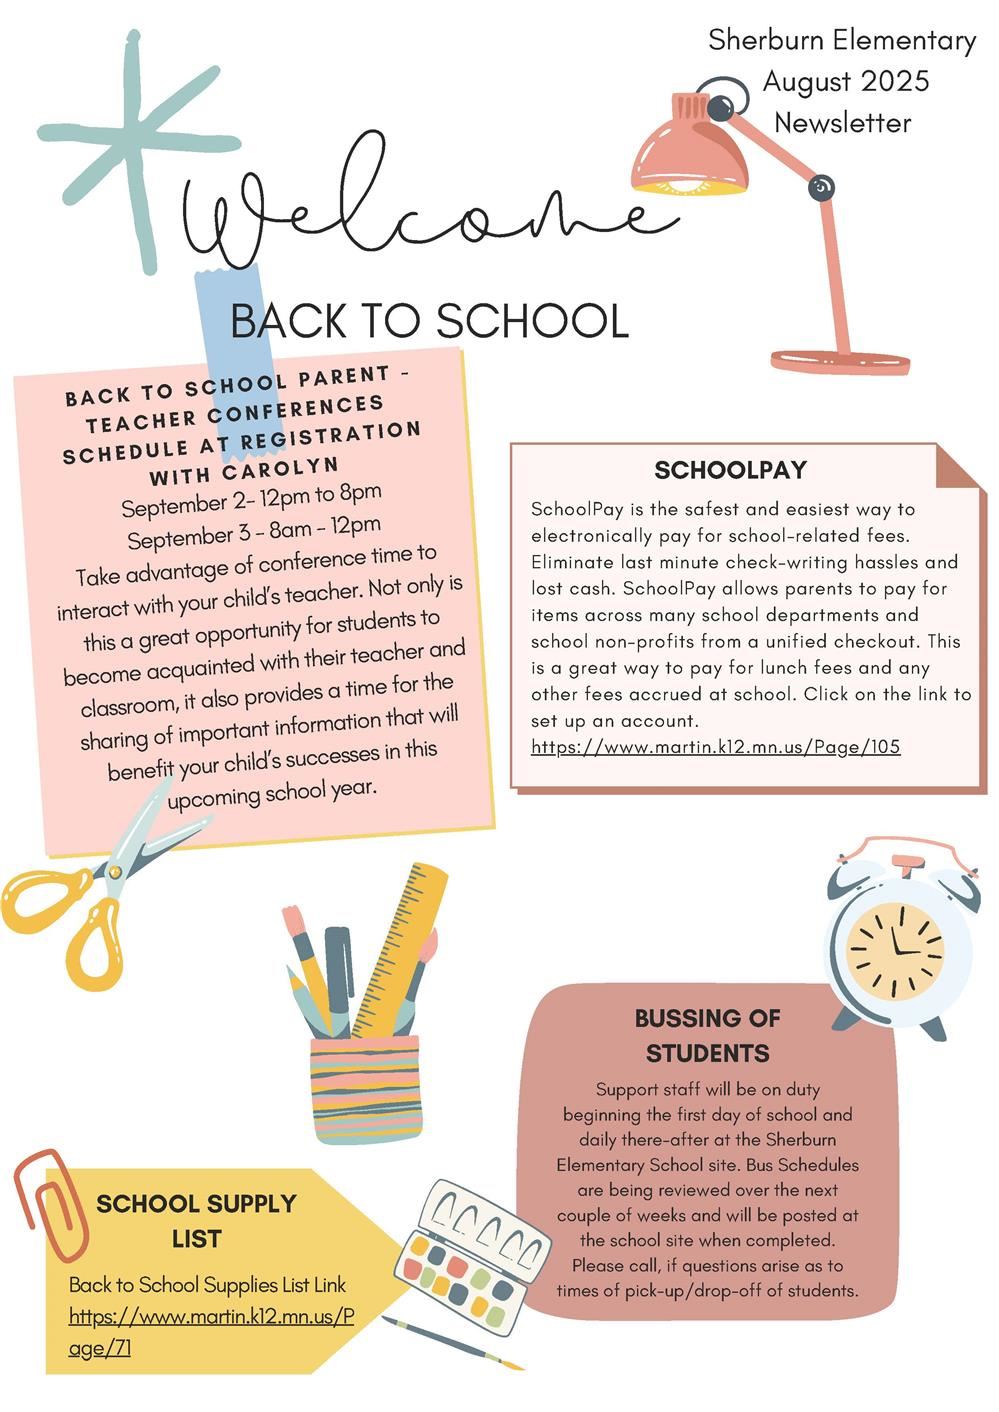 Sherburn Elementary
August 2025
Newsletter
Welcome
BACK TO SCHOOL
BACK TO SCHOOL PARENT -
TEACHER CONFERENCES
SCHEDULE AT REGISTRATION
WITH CAROLYN
September 2- 12pm to 8pm
September 3 - 8am - 12pm
Take advantage of conference time to
interact with your child's teacher. Not only is
this a great opportunity for students to
become acquainted with their teacher and
classroom, it also provides a time for the
sharing of important information that will
benefit your child's successes in this
upcoming school year.
SCHOOLPAY
SchoolPay is the safest and easiest way to
electronically pay for school-related fees.
Eliminate last minute check-writing hassles and
lost cash. SchoolPay allows parents to pay for
items across many school departments and
school non-profits from a unified checkout. This
is a great way to pay for lunch fees and any
other fees accrued at school. Click on the link to
set up an account.
https://www.martin.k12.mn.us/Page/105
BUSSING OF
STUDENTS
Support staff will be on duty
beginning the first day of school and
daily there-after at the Sherburn
Elementary School site. Bus Schedules
are being reviewed over the next
couple of weeks and will be posted at
the school site when completed.
Please call, if questions arise as to
times of pick-up/drop-off of students.
SCHOOL SUPPLY
LIST
Back to School Supplies List Link
https://www.martin.k12.mn.us/P
age/71